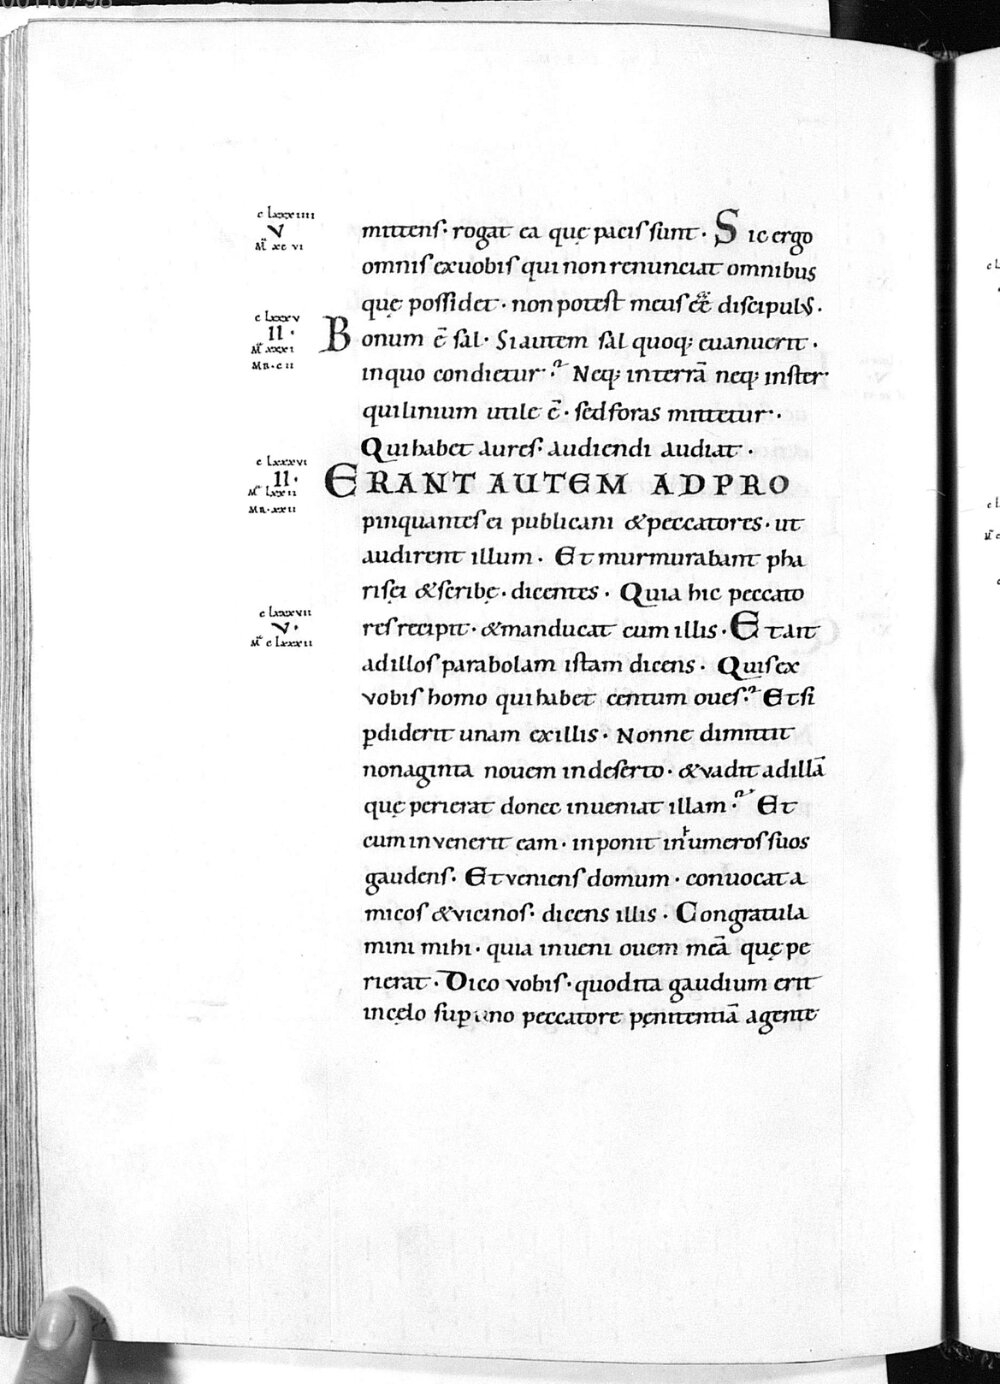 c Lxxxiiii
V
M̅ xc vi
mittens· rogat ea quę pacis sunt· Sic ergo
omnis exuobis qui non renunciat omnibus
quę possidet· non potest meus eē discipulus·
c Lxxxv
II·
M̅ xxxi
MR·c ii
Bonum ē sal· Si autem sal quoq; euanuerit·
inquo condietur? Neq; interrā neq; inster
quilinium utile ē· sed foras mittetur·
Qui habet aures audiendi audiat·
c Lxxxvi
II·
M̅ Lxxii
MR·xxii
ERANT AUTEM ADPRO
pinquantes ei publicani &peccatores· ut
audirent illum· Et murmurabant pha
risęi &scribę· dicentes· Quia hic peccato
c Lxxxvii
V·
M̅ c Lxxxii
res recipit· &manducat cum illis· Et ait
adillos parabolam istam dicens· Quis ex
vobis homo qui habet centum oues? Et si
ꝑdiderit unam exillis· Nonne dimittit
nonaginta nouem indeserto· &vadit adillā
quę perierat donec inueniat illam? Et
cum invenerit eam· inponit inhumeros suos
gaudens· Et veniens domum· conuocat a
micos &vicinos· dicens illis· Congratula
mini mihi· quia inueni ouem meā quę pe
rierat· Dico vobis· quodita gaudium erit
incęlo suꝑ uno peccatore pęnitentiā agente